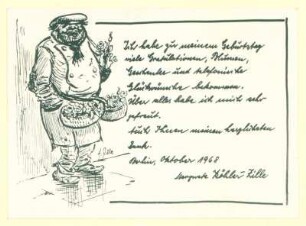 Ich habe zu meinem Geburtstag
viele Gratulationen, Blumen,
Geschenke und telefonische
Glückwünsche bekommen.
Über alles habe ich mich sehr
gefreut.
Auch Ihnen meinen herzlichsten
Dank.
Berlin, Oktober 1968
Margarete Köhler-Zille
H. Zille